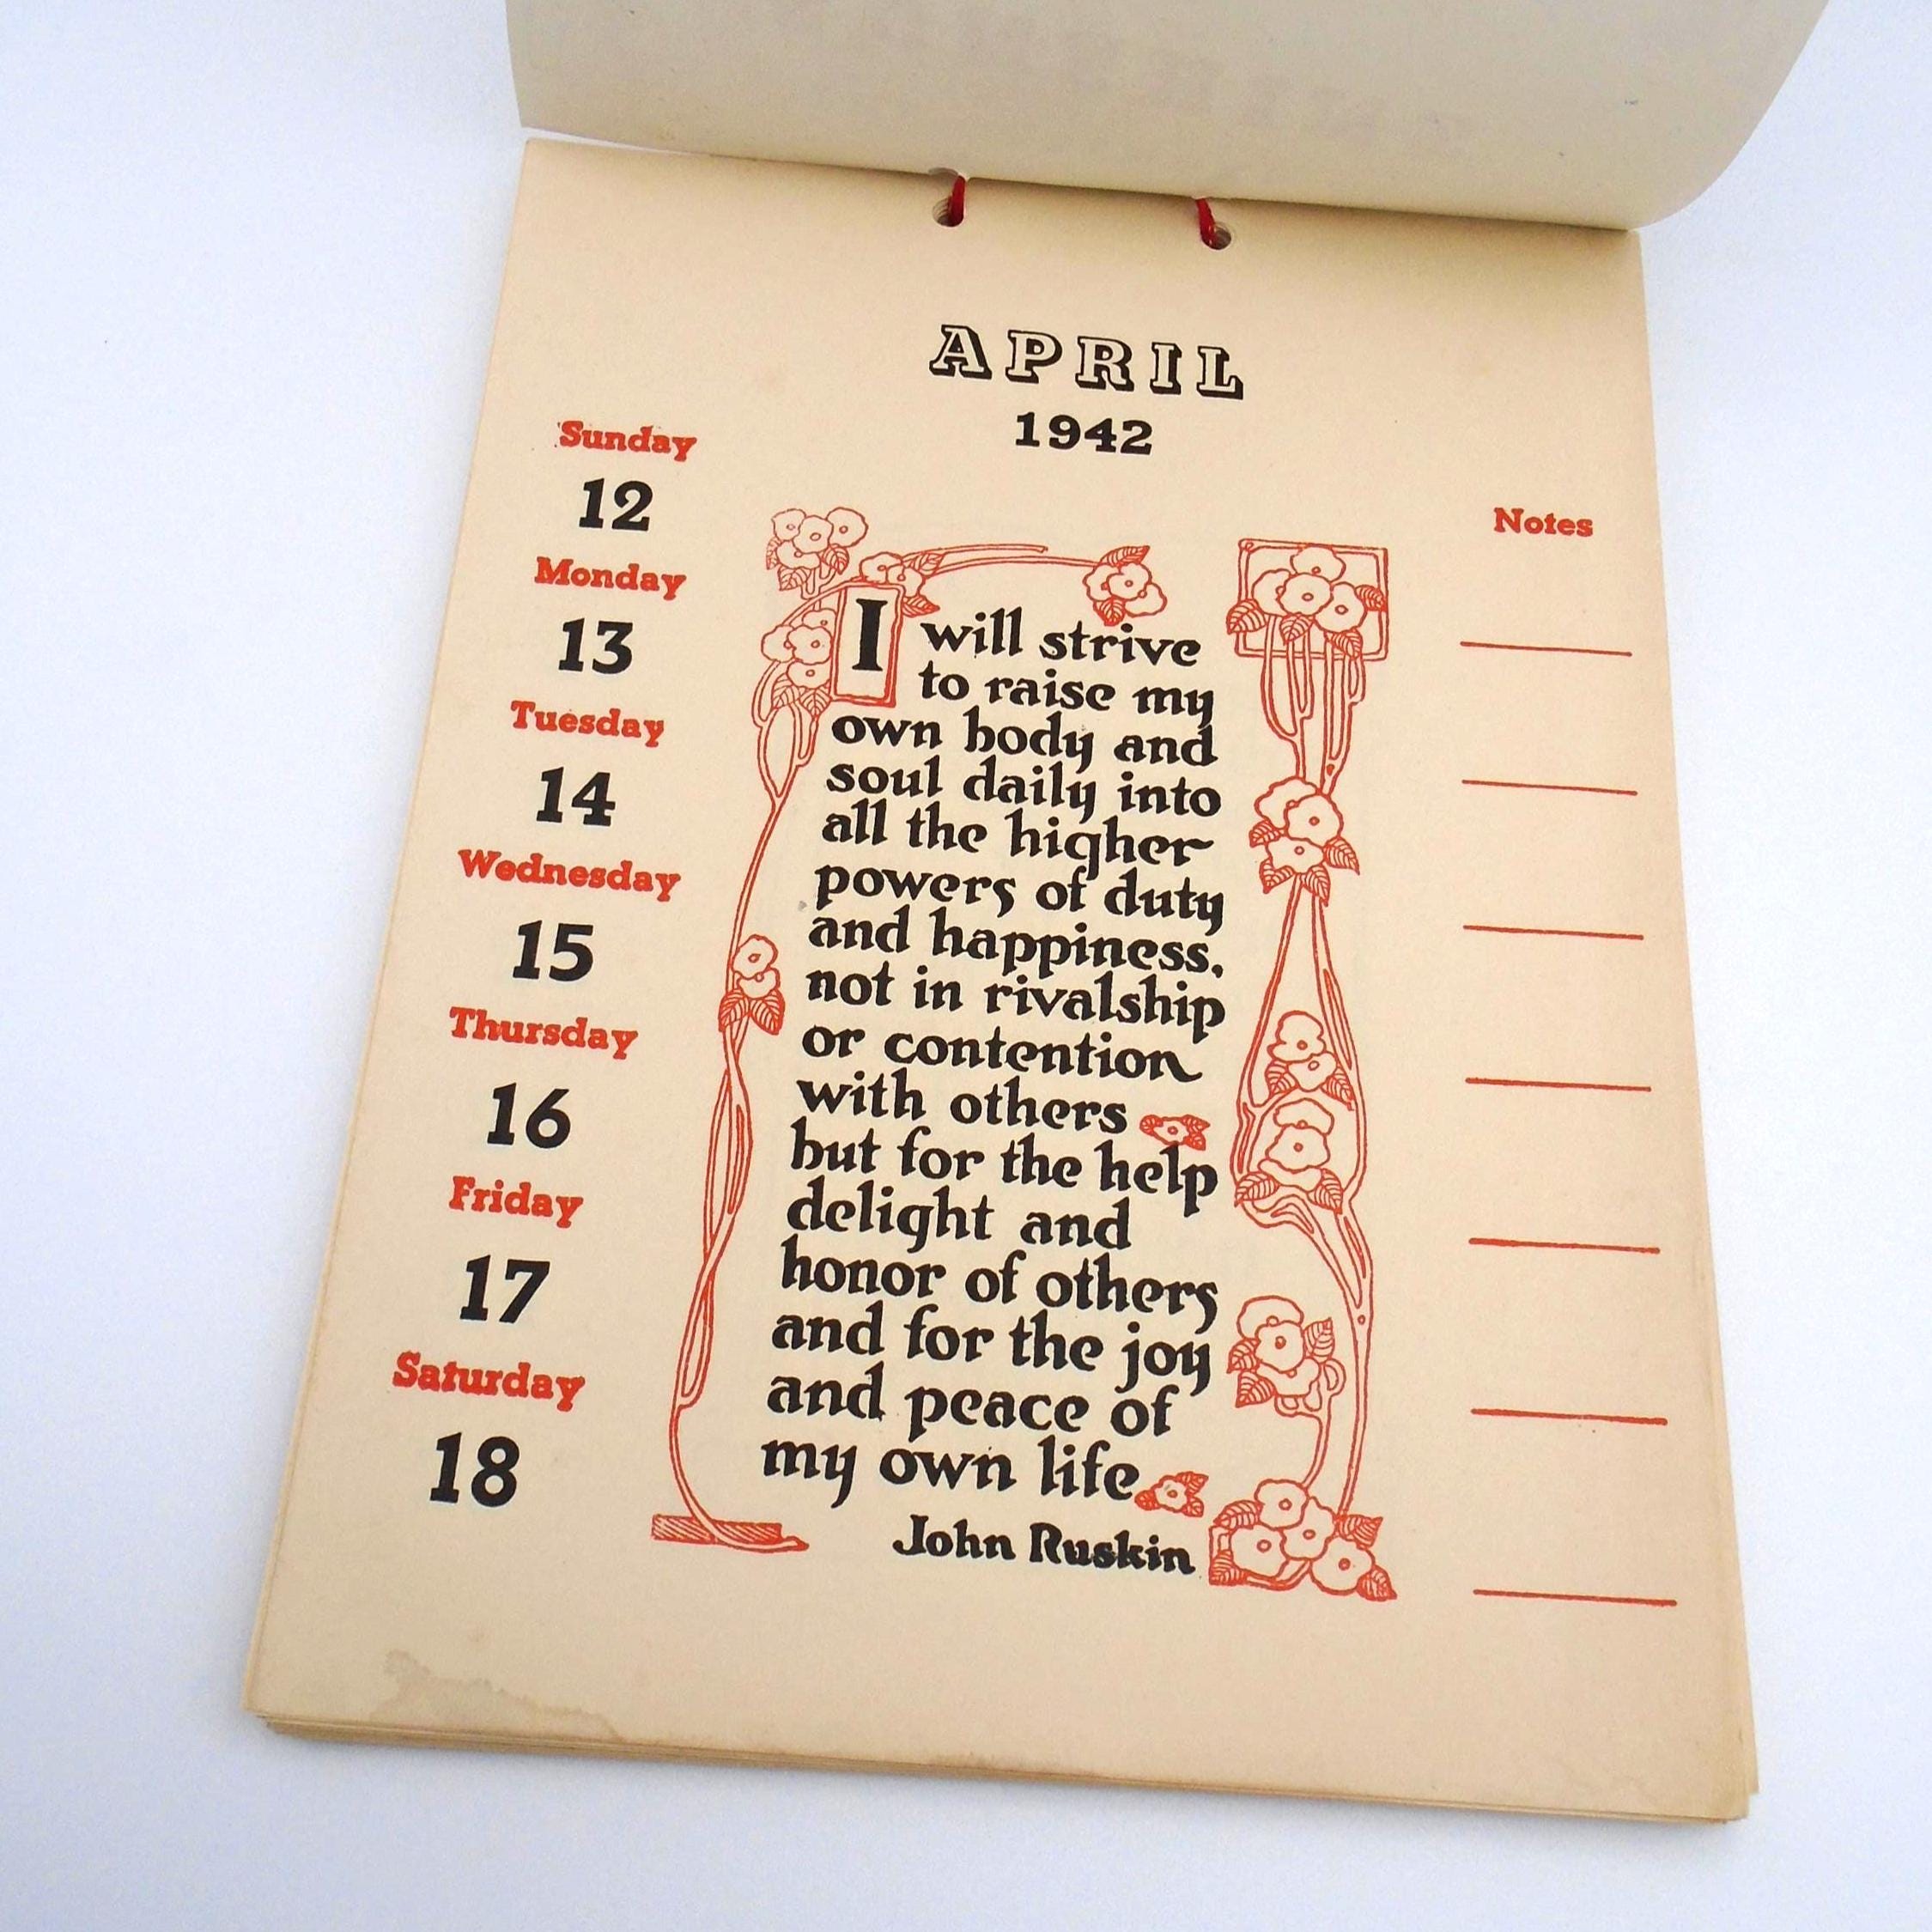 APRIL
1942
Sunday
12
Monday
13
Tuesday
14
Wednesday
15
Thursday
16
Friday
17
Saturday
18
I will strive
to raise my
own body and
soul daily into
all the higher
powers of duty
and happiness,
not in rivalship
or contention
with others
but for the help
delight and
honor of others
and for the joy
and peace of
my own life
John Ruskin
Notes